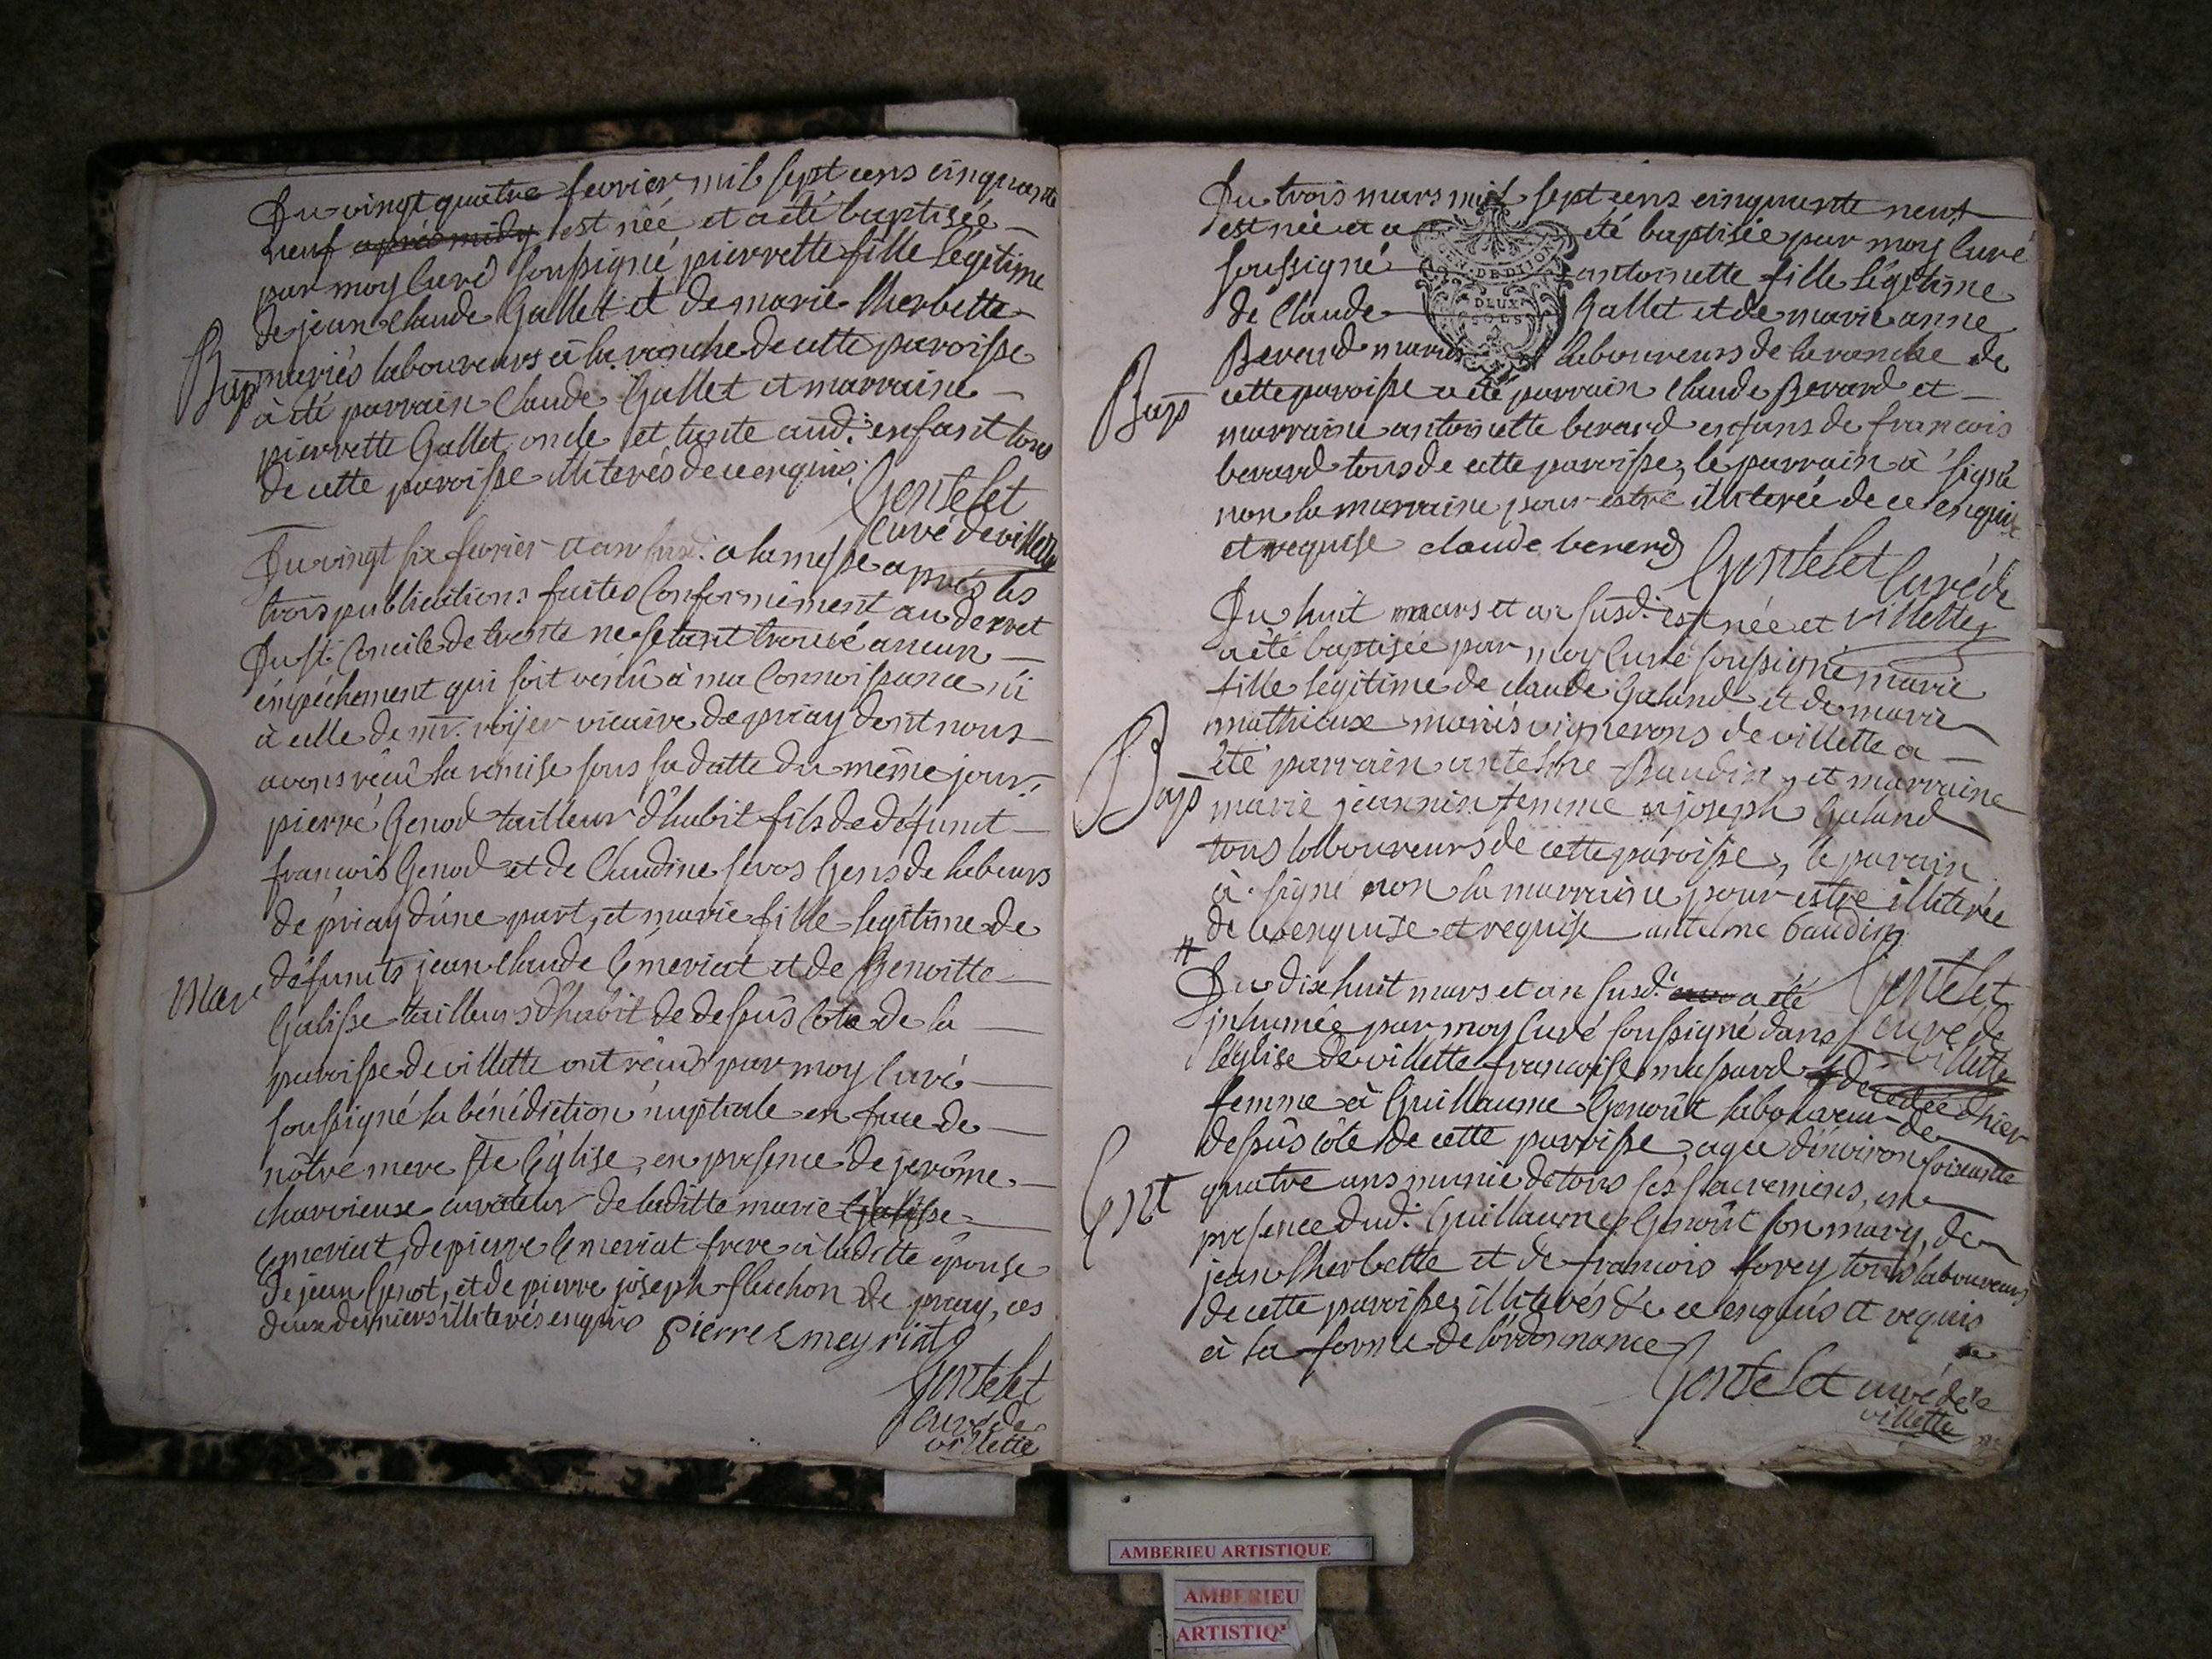 Du vingt quatre fevrier mil sept cens cinquante
neuf aprés midy est néé et a eté baptisée
par moy Curé soussigné pierrette fille légitime
de jean Claude Gallet et de marie lherbette
Bap mariés laboureurs à la ranche de cette paroisse
à eté parrain Claude Gallet et marraine
pierrette Gallet oncle et tante aud. enfant tous
de cette paroisse illiterés de ce enquis
Gontelet
Curé de villette
Du vingt six fevrier et an susd. a la messe aprés les
trois publications faites Conformement au decret
du st. Concile de trente ne setant trouvé aucun
émpéchement qui soit venû à ma Connoissance ni
à celle de mr. royer vicaire de priay dont nous
avons réçû la remise sous sa datte du même jour,
pierre Genod tailleur d'habit fils de défunct
francois Genod et de Claudine servos Gens de labeurs
de priay d'une part, et marie fille legitime de
Mar défunts jean Claude Emeriat et de Benoitte
Galisse tailleurs d'habit de dessûs Côte de la
paroisse de villette ont réçus par moy Curé
soussigné la bénédiction nuptiale en face de
nôtre mere ste Eglise, en presence de jerôme
charvieux curateur de laditte marie Galisse
Emeriat, de pierre Emeriat frere à laditte épouse
de jean Genot, et de pierre joseph fluchon de priay, ces
deux derniers illiterés enquis pierre Emeyriat
Gontelet
curé de
villette
Du trois mars mil sept cens cinquante neuf
est néé et a été baptisée par moy Curé
soussigné antoinette fille légitime
GEN DE DIJON
DEUX
SOLS
de Claude Gallet et de marie anne
Berard mariés laboureurs de la ranche de
Bap cette paroisse a été parrain Claude Berard et
marraine antoinette berard enfans de francois
berard tous de cette paroisse, le parrain à signé
non la marraine pour estre illiterée de ce enquise
et requise claude bererd Gontelet Curé de
villette
Du huit mars et an susd. est née et
a été baptisée par moy Curé soussigné marie
fille légitime de claude Galand et de marie
mathieux mariés vignerons de villette a
Bap été parrain antelme Baudin, et marraine
marie jeannin femme a joseph Galand
tous laboureurs de cette paroisse, le parain
à signé non la marraine pour estre illiterée
de ce enquise et requise antelme baudin
Gontelet
curé de
villette
Du dix huit mars et an susd. a été
inhumée par moy Curé soussigné dans
l'église de villette francoise maspard decedée d'hier
femme à Guillaume Genoût laboureur de
dessûs côte de cette paroisse, agée d'environ soixante
Ent quatre ans munie de tous ses sacremens, en
presence dud. Guillaume Genoût son mary, de
jean lherbette et de francois forey tous laboureurs
de cette paroisse illiterés de ce enquis et requis
à la forme de l'ordonnance
Gontelet curé de
villette
AMBERIEU ARTISTIQUE
AMBERIEU
ARTISTIQ